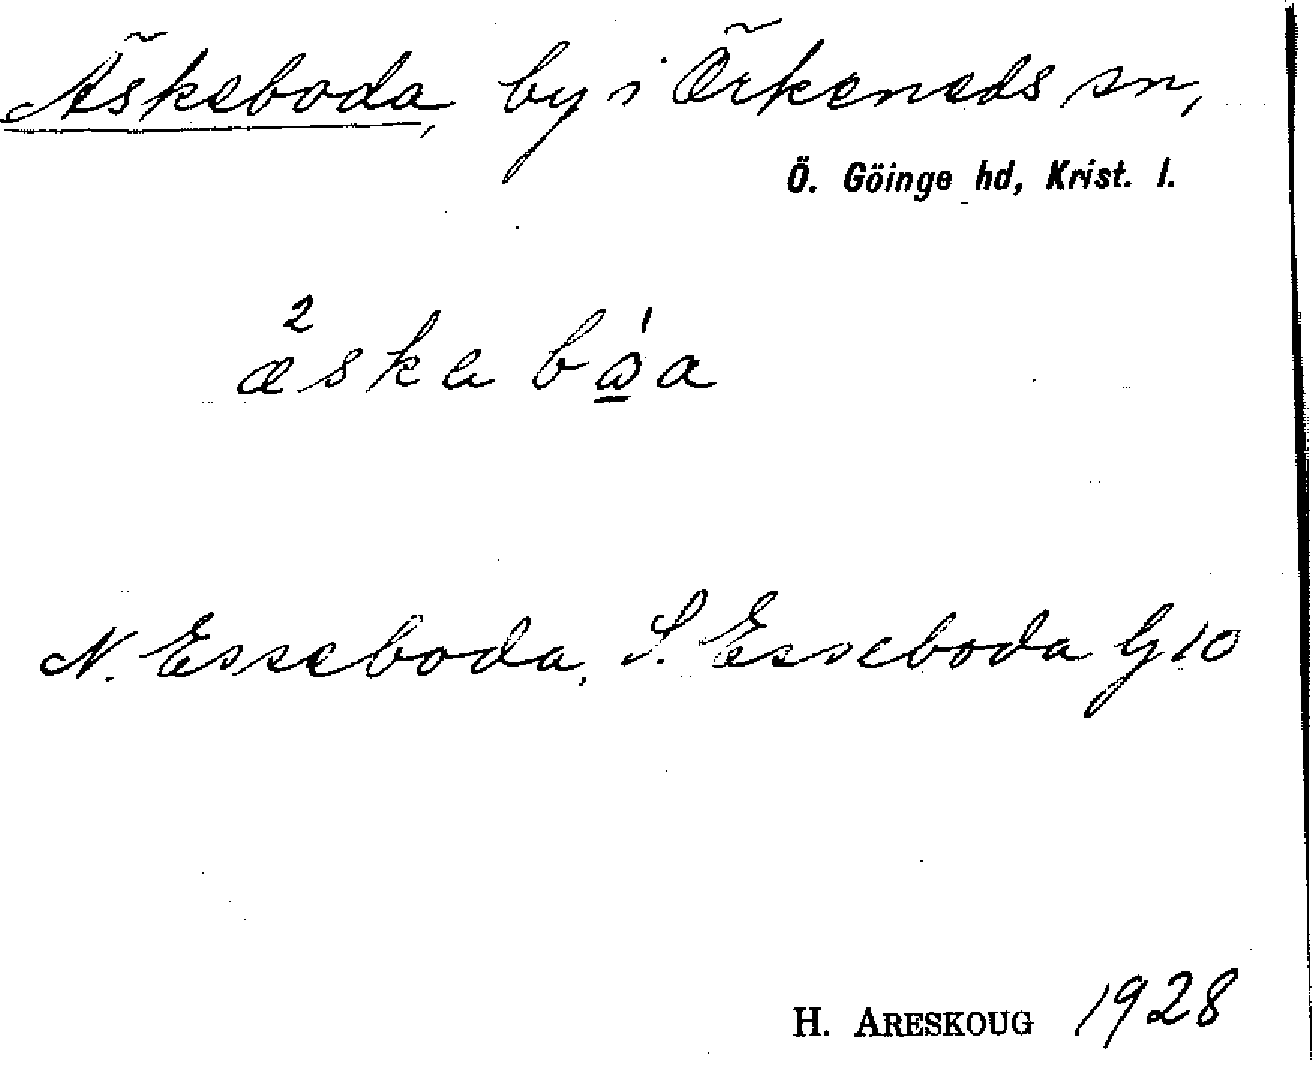 Äskeboda, by i Örkeneds sn,
Ö. Göinge hd, Krist. l.
N. Esseboda, S. Esseboda G10
H. ARESKOUG 1928